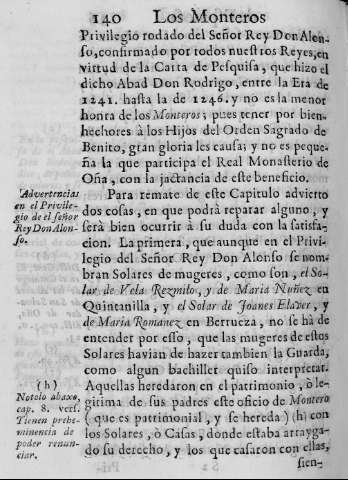 140 Los Monteros
Privilegio rodado del Señor Rey Don Alon-
so, confirmado por todos nuestros Reyes, en
virtud de la Carta de Pesquisa, que hizo el
dicho Abad Don Rodrigo, entre la Era de
1241. hasta la de 1246. y no es la menor
honra de los Monteros; pues tener por bien-
hechores à los Hijos del Orden Sagrado de
Benito, gran gloria les causa; y no es peque-
ña la que participa el Real Monasterio de
Oña, con la jactancia de este beneficio.
Para remate de este Capitulo advierto
dos cosas, en que podrà reparar alguno, y
serà bien ocurrir à su duda con la satisfa-
cion. La primera, que aunque en el Privi-
legio del Señor Rey Don Alonso se nom-
bran Solares de mugeres, como son, el So-
lar de Vela Rezmilo, y de Maria Nuñez en
Quintanilla, y el Solar de Joanes Elaver, y
de Maria Romanez en Berrueza, no se hà de
entender por esso, que las mugeres de estos
Solares havian de hazer tambien la Guarda,
como algun bachiller quiso interpretar.
Aquellas heredaron en el patrimonio, ò le-
gitima de sus padres este oficio de Montero
(que es patrimonial, y se hereda) (h) con
los Solares, ò Casas, donde estaba arrayga-
do su derecho, y los que casaron con ellas,
sien-
Advertencias
en el Privile-
gio de el señor
Rey Don Alon-
so.
(h)
Notolo abaxo,
cap. 8. vers.
Tienen prehe-
minencia de
poder renun-
ciar.